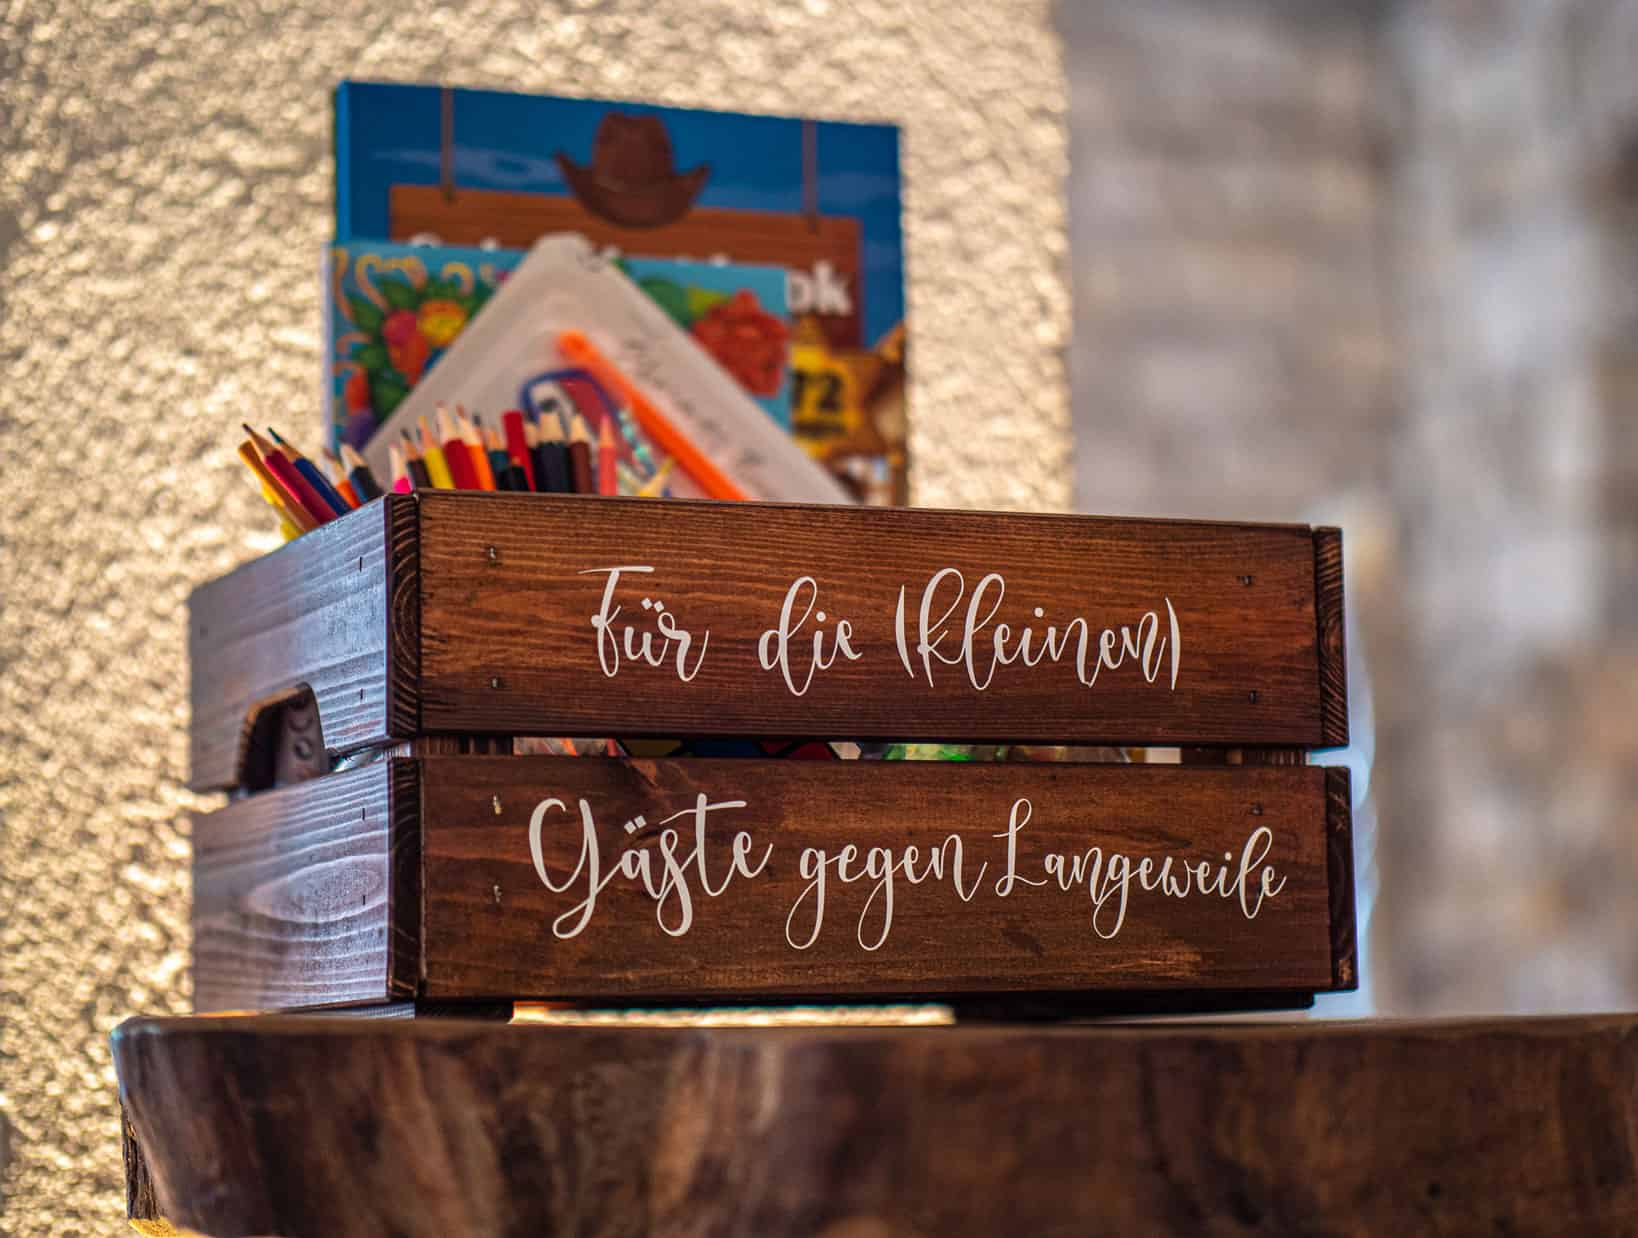 72
Für die (kleinen)
Gäste gegen Langeweile